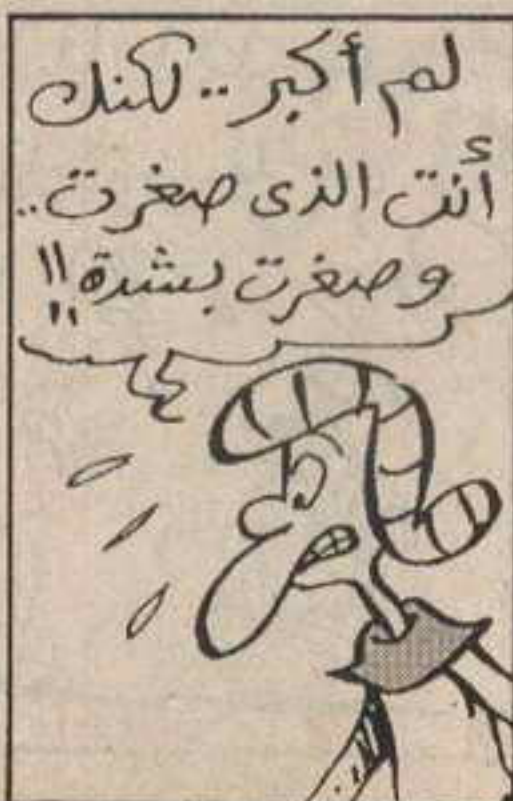 لم أكبر .. لكنك
أنت الذى صغرت ..
وصغرت بشدة !!